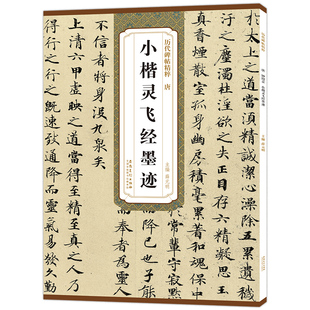 历代碑帖精粹 唐
小楷灵飞经墨迹
主编
上之道當須精誠潔心澡除五累遺穢
之塵濁杜淫欲之失正目存六精凝思玉
真香煙散室孤身幽房積毫累著和魂保中
於常輩守寂默
而降已也子
而奉者為靈人
不信者將身沒九泉矣
上清六甲虛映之道當得至精至真之人
得行之行之既速致通降而靈氣易發久勤